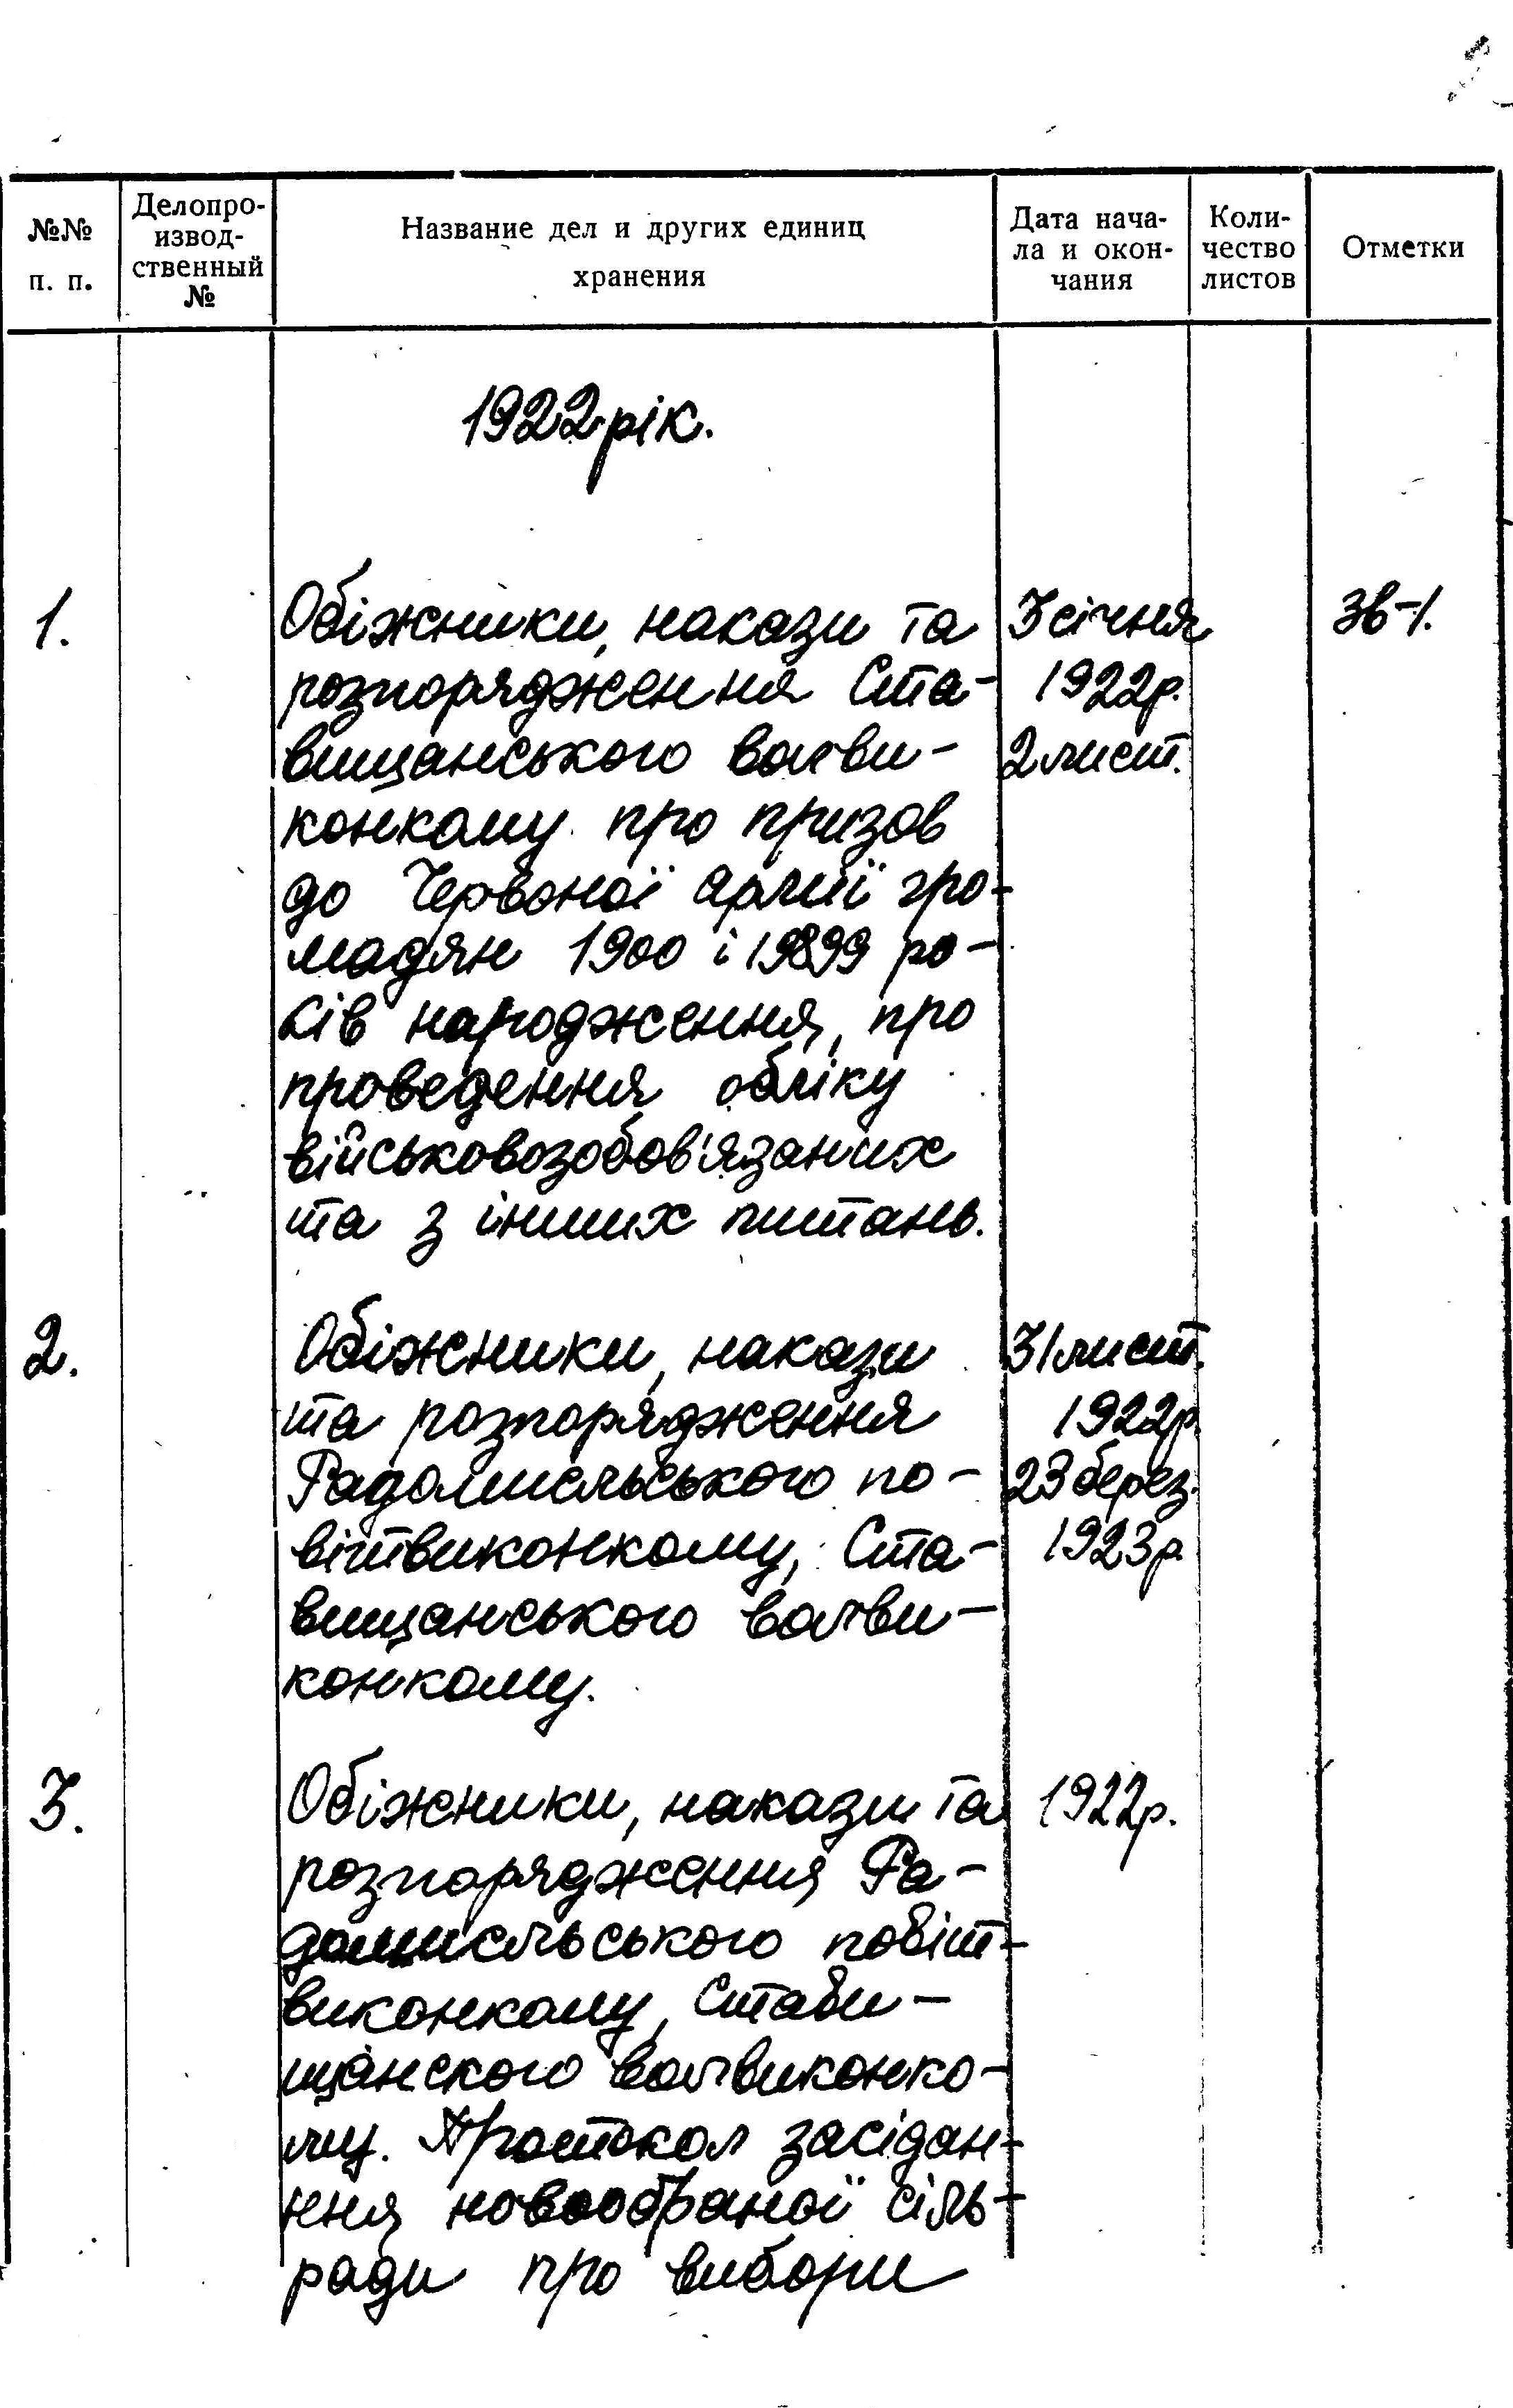 №№ п. п.
Делопро-
извод-
ственный
№
Название дел и других единиц
хранения
Дата нача-
ла и окон-
чания
Коли-
чество
листов
Отметки
1922 рік.
1. Обіжники, накази та 3 січня Зв-1.
розпорядження Ста- 1922р.
вищанського волви- 2 лист.
конкому про призов
до Червоної Армії гро-
мадян 1900 і 19899 ро-
ків народження, про
проведення обліку
військовозобов'язаних
та з інших питань.
2. Обіжники, накази 31 лист.
та розпорядження 1922р.
Радомисльського по- 23 берез.
вітвиконкому, Ста- 1923р.
вищанського волви-
конкому.
3. Обіжники, накази та 1922р.
розпорядження Ра-
домисльського повіт-
виконкому, Стави-
щанского волвиконко-
му. Протокол засідан-
ння новообраної сіль-
ради про вибори